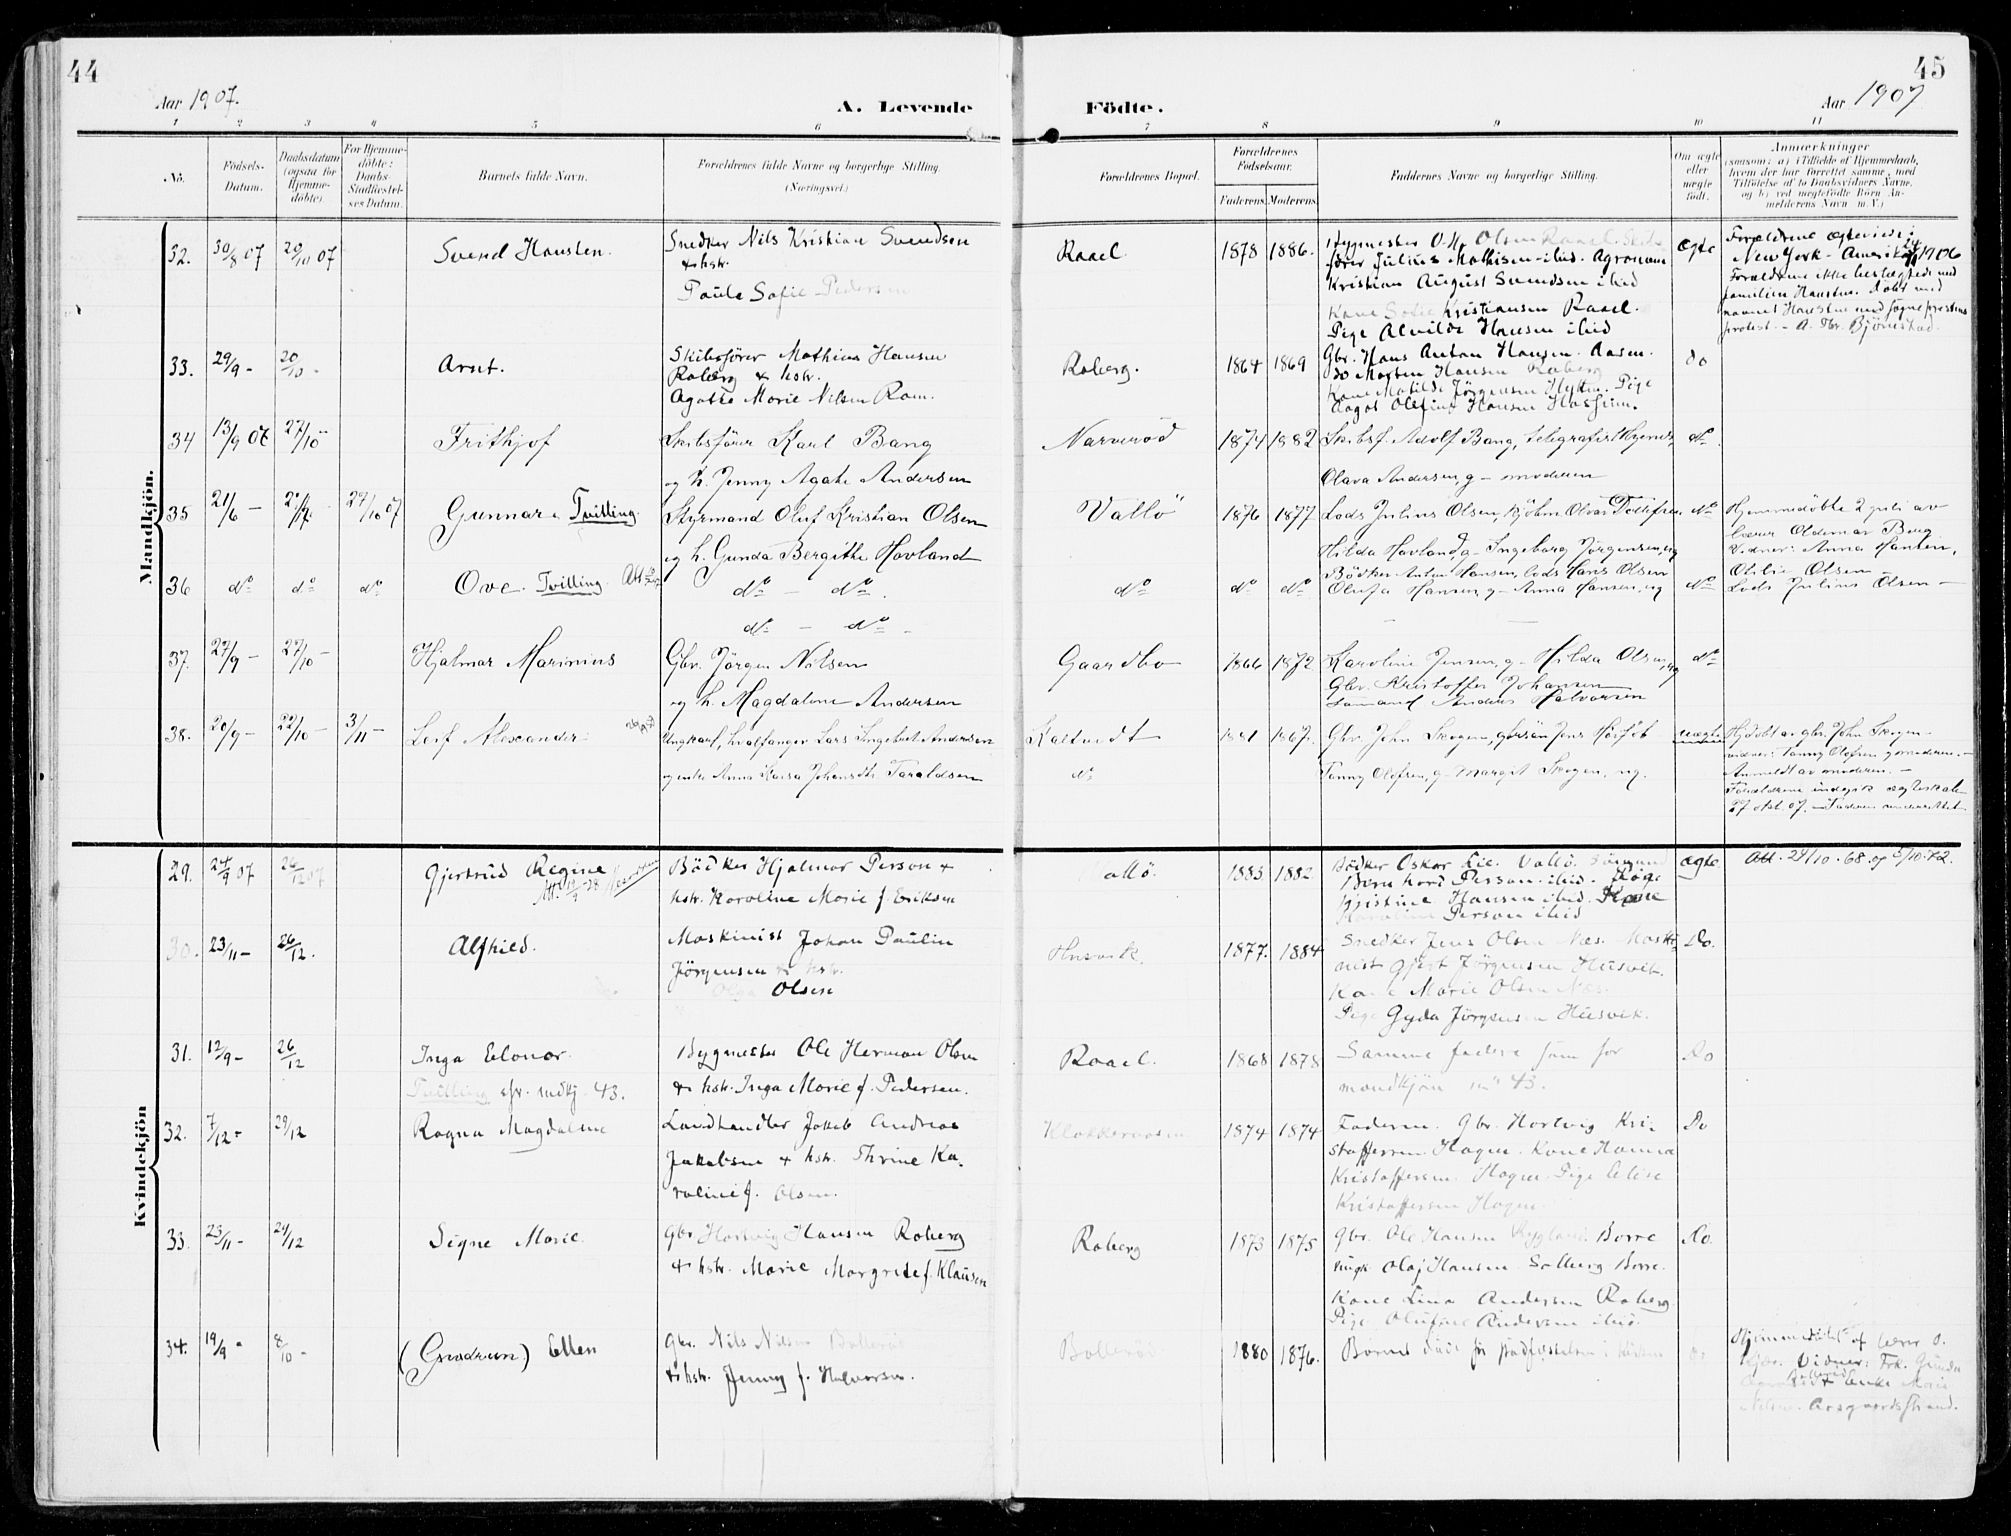 44
45
Aar 1907.
A. Levende
Födte.
Aar 1907
1 2 3 4 5 6
7 8 9 10 11
No.
Födsels-
Datum.
Daabsdatum
(ogsaa for
Hjemme-
döbte).
For Hjemme-
döbte:
Daabs-
Stadfæstel-
ses Datum.
Barnets fulde Navn.
Forældrenes fulde Navne og borgerlige Stilling.
(Næringsvei.)
Forældrenes Bopæl.
Forældrenes
Födselsaar.
Faderens. Moderens.
Faddernes Navne og borgerlige Stilling.
Om ægte
eller
uægte
födt.
Anmærkninger
(saasom: a) i Tilfælde af Hjemmedaab,
hvem der har forrettet samme, med
Tilföielse af to Daabsvidners Navne,
og b) ved uægtefödte Börn An-
melderens Navn m. V.)
Mandkjön.
32. 30/8 07 20/10 07 Svend Hansten.
Snedker Nils Kristian Svendsen
& hstr.
Paula Sofie Pedersen
Raael. 1878 1886.
Bygmester O. H. Olsen Raael.
fører Julius Mathisen ibid. Agronom
Kristian August Svendsen ibid
Kone Sofie Kristiansen Raael.
Pige Alvilde Hansen ibid
ægte
Forældrene ægteviede i
New York - Amerika 1906
Forældrene ikke beslægtede med
familien Hansten. Døbt med
navnet Hansten mod sogneprestens
protest. - A. Thr. Bjönestad.
33. 29/9 - 20/10 - Arnt.
Skibsfører Mathias Hansen
Roberg & hstr.
Agathe Marie Nilsen Rom.
Roberg. 1864 1869
Gbr. Hans Anton Hansen. Aasen.
do Morten Hansen Roberg
Kone Matilde Jørgensen Hytten. Pige
Aagot Olefine Hansen
do
34 13/9 07 27/10 - Frithjof
Skibsfører Karl Bang
og h. Jenny Agate Andersen
Narverød 1874 1882
Skibsf. Adolf Bang, telegrafist
Olava Andersen, g - moderen
do
35 21/6 - 2/7 - 27/10 07 Gunnar. Tvilling
Styrmand Oluf Kristian Olsen
og h. Gunda Bergithe Hovland
Vallö 1876 1877
Lods Julius Olsen, kjöbm. Olvar Tollefsen,
Hilda Hovland, g - Ingeborg Jørgensen, ug
do
Hjemmedöbte 2 juli av
lærer Oldemar Berg
Vidner: Anna Hansen,
Otilie Olsen
Lods Julius Olsen -
36 do do do Ove. Tvilling.
do - do.
do - do -
do do do
Bödker Anton Hansen, lods Hans Olsen
Olufa Hansen, g - Anna Hansen, ug
do
37. 27/9 - 27/10 - Hjalmar Marinius
Gbr. Jörgen Nilsen
og h. Magdalene Andersen
Gaardbo 1866 1872
Karoline Jensen, g - Hilda Olsen, ug
Gbr. Kristoffer Johansen
Sömand Anders Halvorsen
do
38. 20/9 - 22/10 - 3/11 - Leif Alexander
Ungkarl, hvalfanger Lars Ingebret Andersen
Anna Kaisa Johansdtr. Taraldsen
Kaltvedt 1881 1867.
do
Gbr. John Skogen,
Fanny Olofsen, g - Margit Skogen, ug.
uægte
Hjdöbt av gbr. John Skogen
vidner: Fanny Olofsen g moderen. -
Anmeldt av moderen. -
Forældrene indgik ægteskab
27 okt 07. - Faderen underrettet.
Kvindekjön
29. 24/9 07 26/12 07 Gjertrud Regine
Bödker Hjalmar Person &
hstr. Karoline Marie f. Eriksen
Vallö. 1883 1882
Bödker Oskar Lie. Vallö. Sömand
Bernhard Person ibid. Pige
Kristine Hansen ibid. Kone
Karoline Person ibid
ægte
Att. 24/10 - 68 og 5/10-72.
30. 23/11 - 26/12. Alfhild.
Maskinist Johan Paulin
Jörgensen & hstr.
Olga Olsen
Husvik. 1877. 1884
Snedker Jens Olsen Næs. Maski-
nist Gjert Jörgensen Husvik.
Kone Marie Olsen Næs.
Pige Gyda Jörgensen Husvik.
Do.
31. 12/9 - 26/12 Inga Elonor.
Tvilling cfr. mdkj. 43.
Bygmester Ole Herman Olsen
& hstr. Inga Marie f. Pedersen.
Raael. 1868 1878
Samme faddere som for
mandkjön no 43.
Do
32. 7/12 - 29/12 Ragna Magdalene
Landhandler Jakob Andreas
Jakobsen & hstr. Thrine Ka-
roline f. Olsen.
Klokkeraasen 1874 1874
Faderen. Gbr. Hartvig Kri-
stoffersen Hagen. Kone Hanna
Kristoffersen Hagen. Pige Elise
Kristoffersen Hagen.
Do
33. 23/11 - 29/12 Signe Marie.
Gbr Hartvig Hansen Roberg
& hstr. Marie Margrete f. Klausen
Roberg 1873 1875
Gbr. Ole Hansen Rygland. Borre
Ungk. Olaf Hansen Solberg Borre.
Kone Lina Andersen Roberg
Pige Olufine Andersen ibid.
Do.
34. 19/9 - 8/10 - (Gudrun) Ellen
Gbr. Nils Nilsen Bolleröd
& hstr. Jenny f. Halvorsen.
Bolleröd. 1880 1876.
Barnet död för stadfæstelsen i kirken
do
Hjemmedöbt af lærer O.
Kjær. Vidner: Frk. Gunda
Bolleröd & Enke Marie
Nilsen. Aasgaardsstrand.